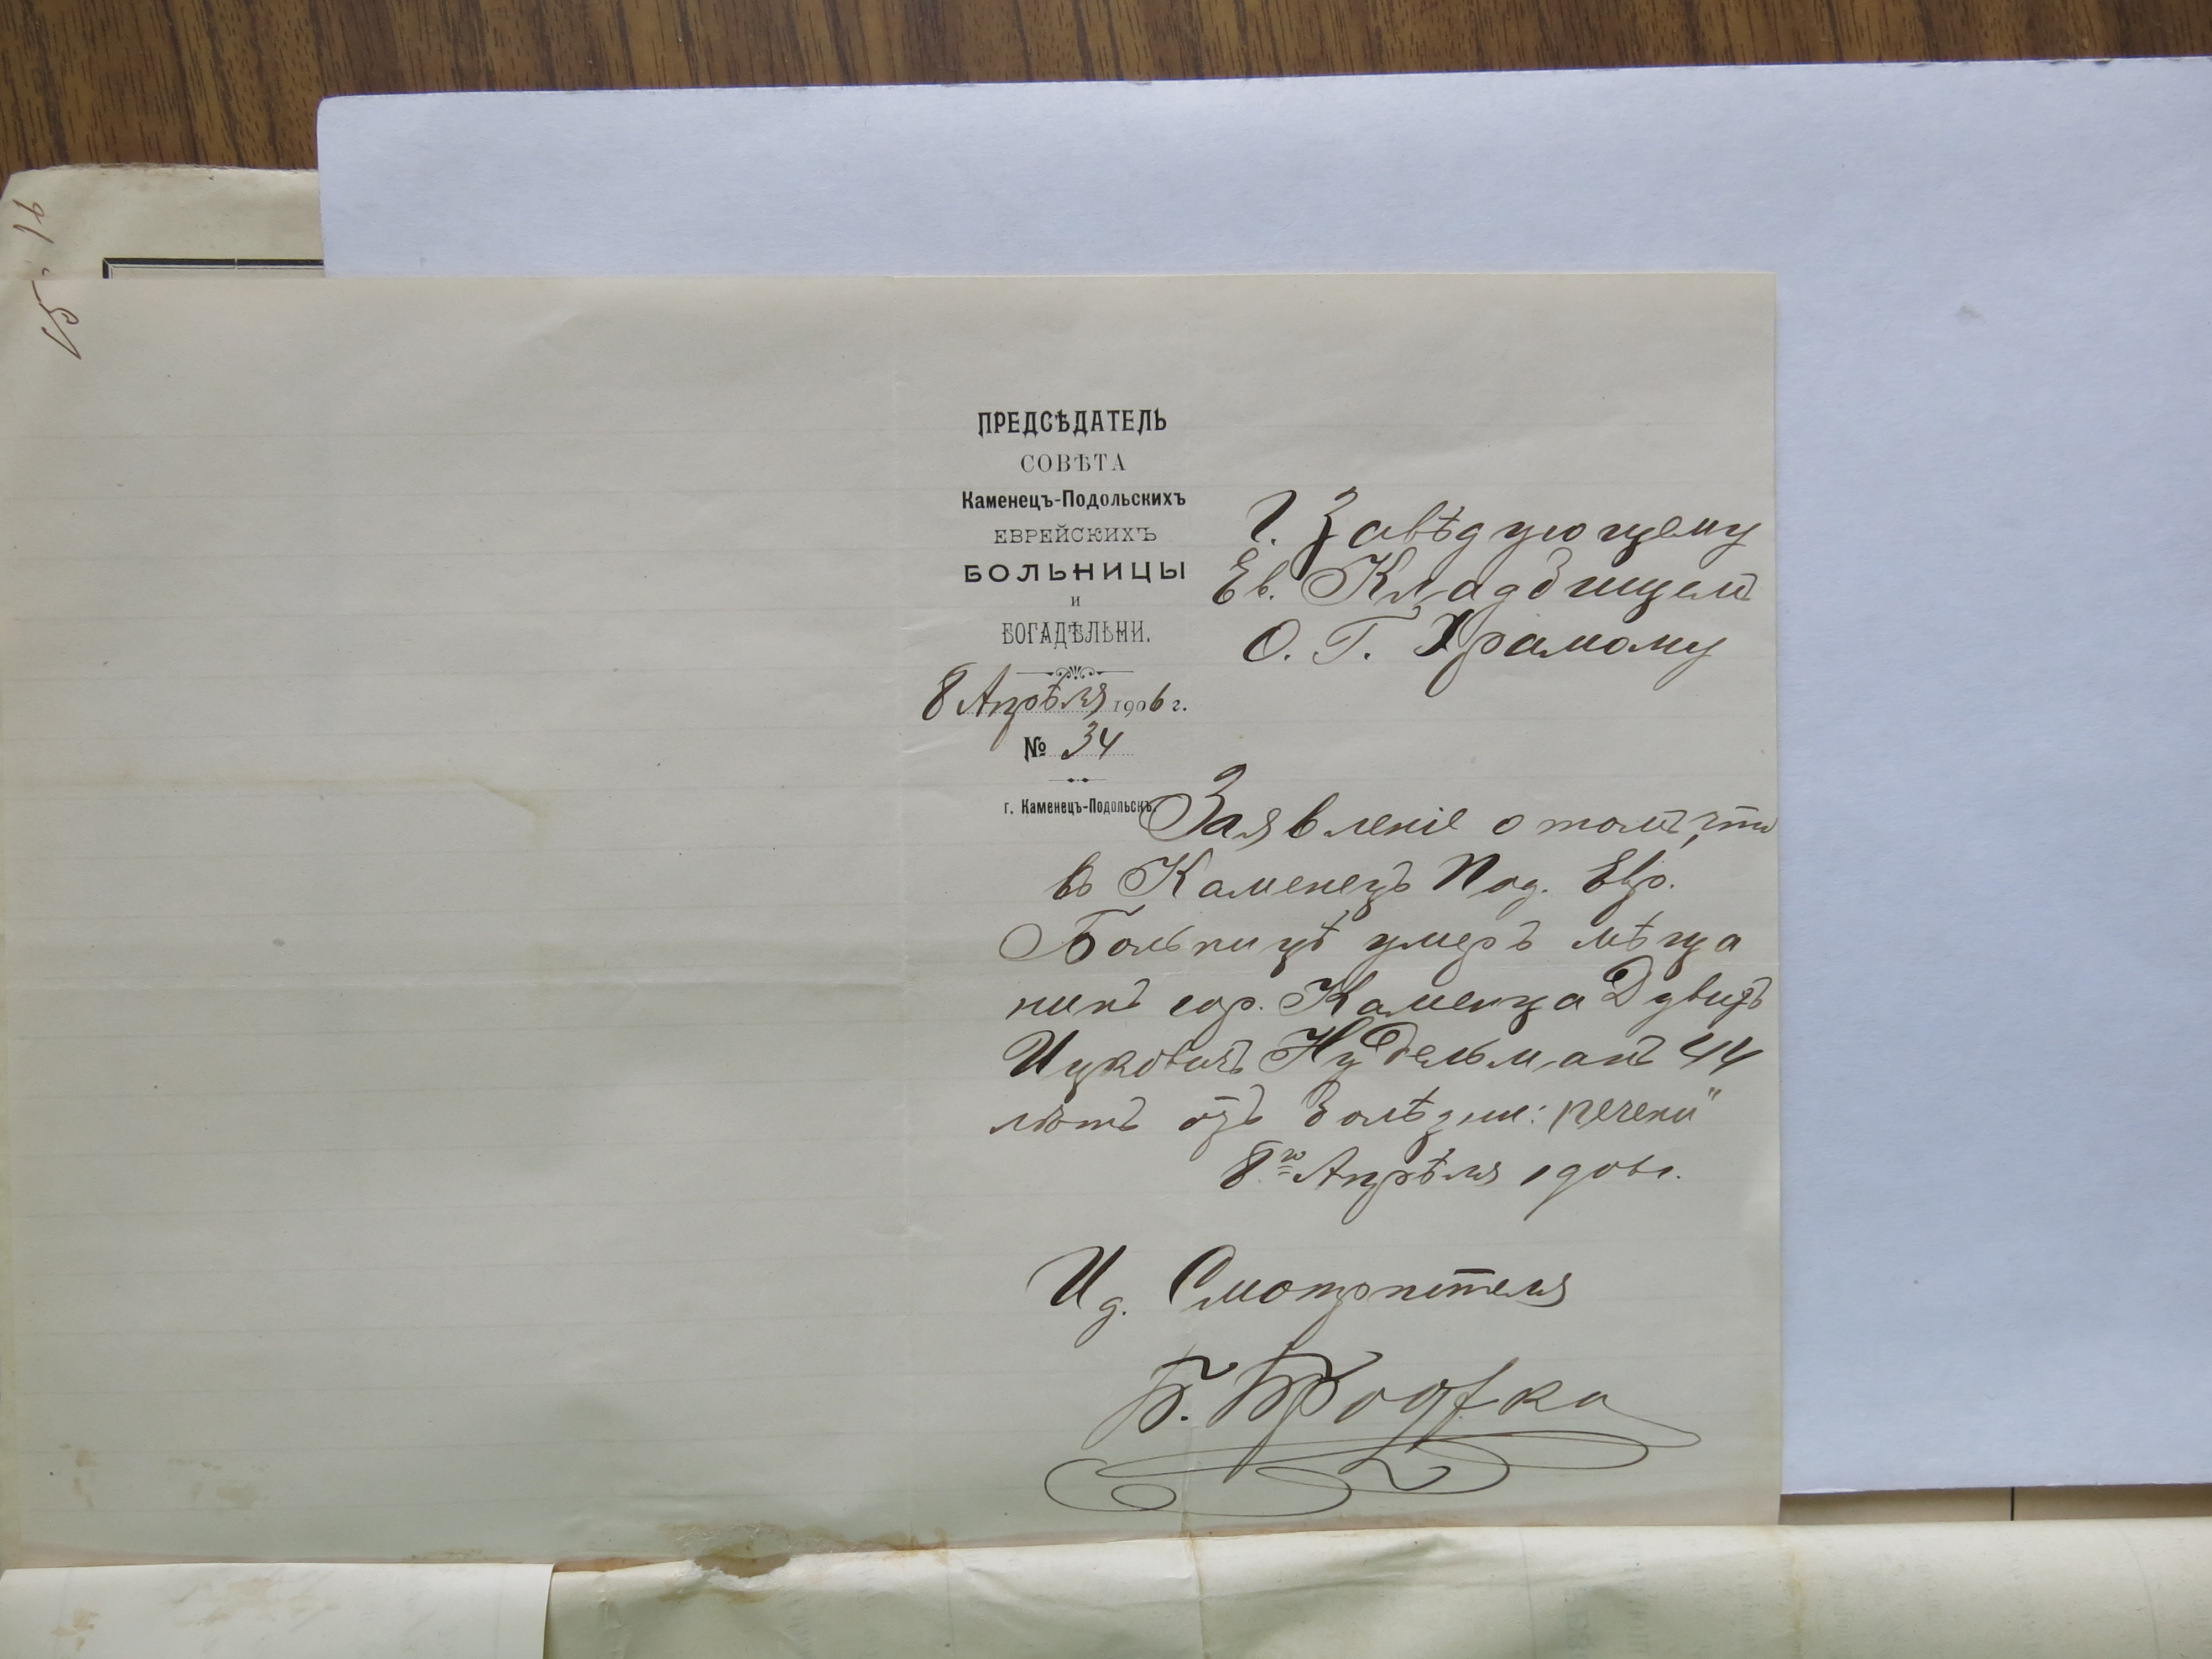 ПРЕДСѢДАТЕЛЬ
СОВѢТА
Каменецъ-Подольскихъ
ЕВРЕЙСКИХЪ
БОЛЬНИЦЫ
и
БОГАДѢЛЬНИ.
8 Апрѣля 1906 г.
№ 34
г. Каменецъ-Подольскъ.
Г. Завѣдующему
Ев. Кладбищемъ
О. Г. Храмому
Заявленіе о томъ, что
въ Каменецъ Под. Евр.
Больницѣ умеръ мѣща
нинъ гор. Каменца
Ицковичъ Нудельманъ 44
лѣтъ отъ болѣзни: печени"
8го Апрѣля 1906 г.
И д. Смотрителя
Б.